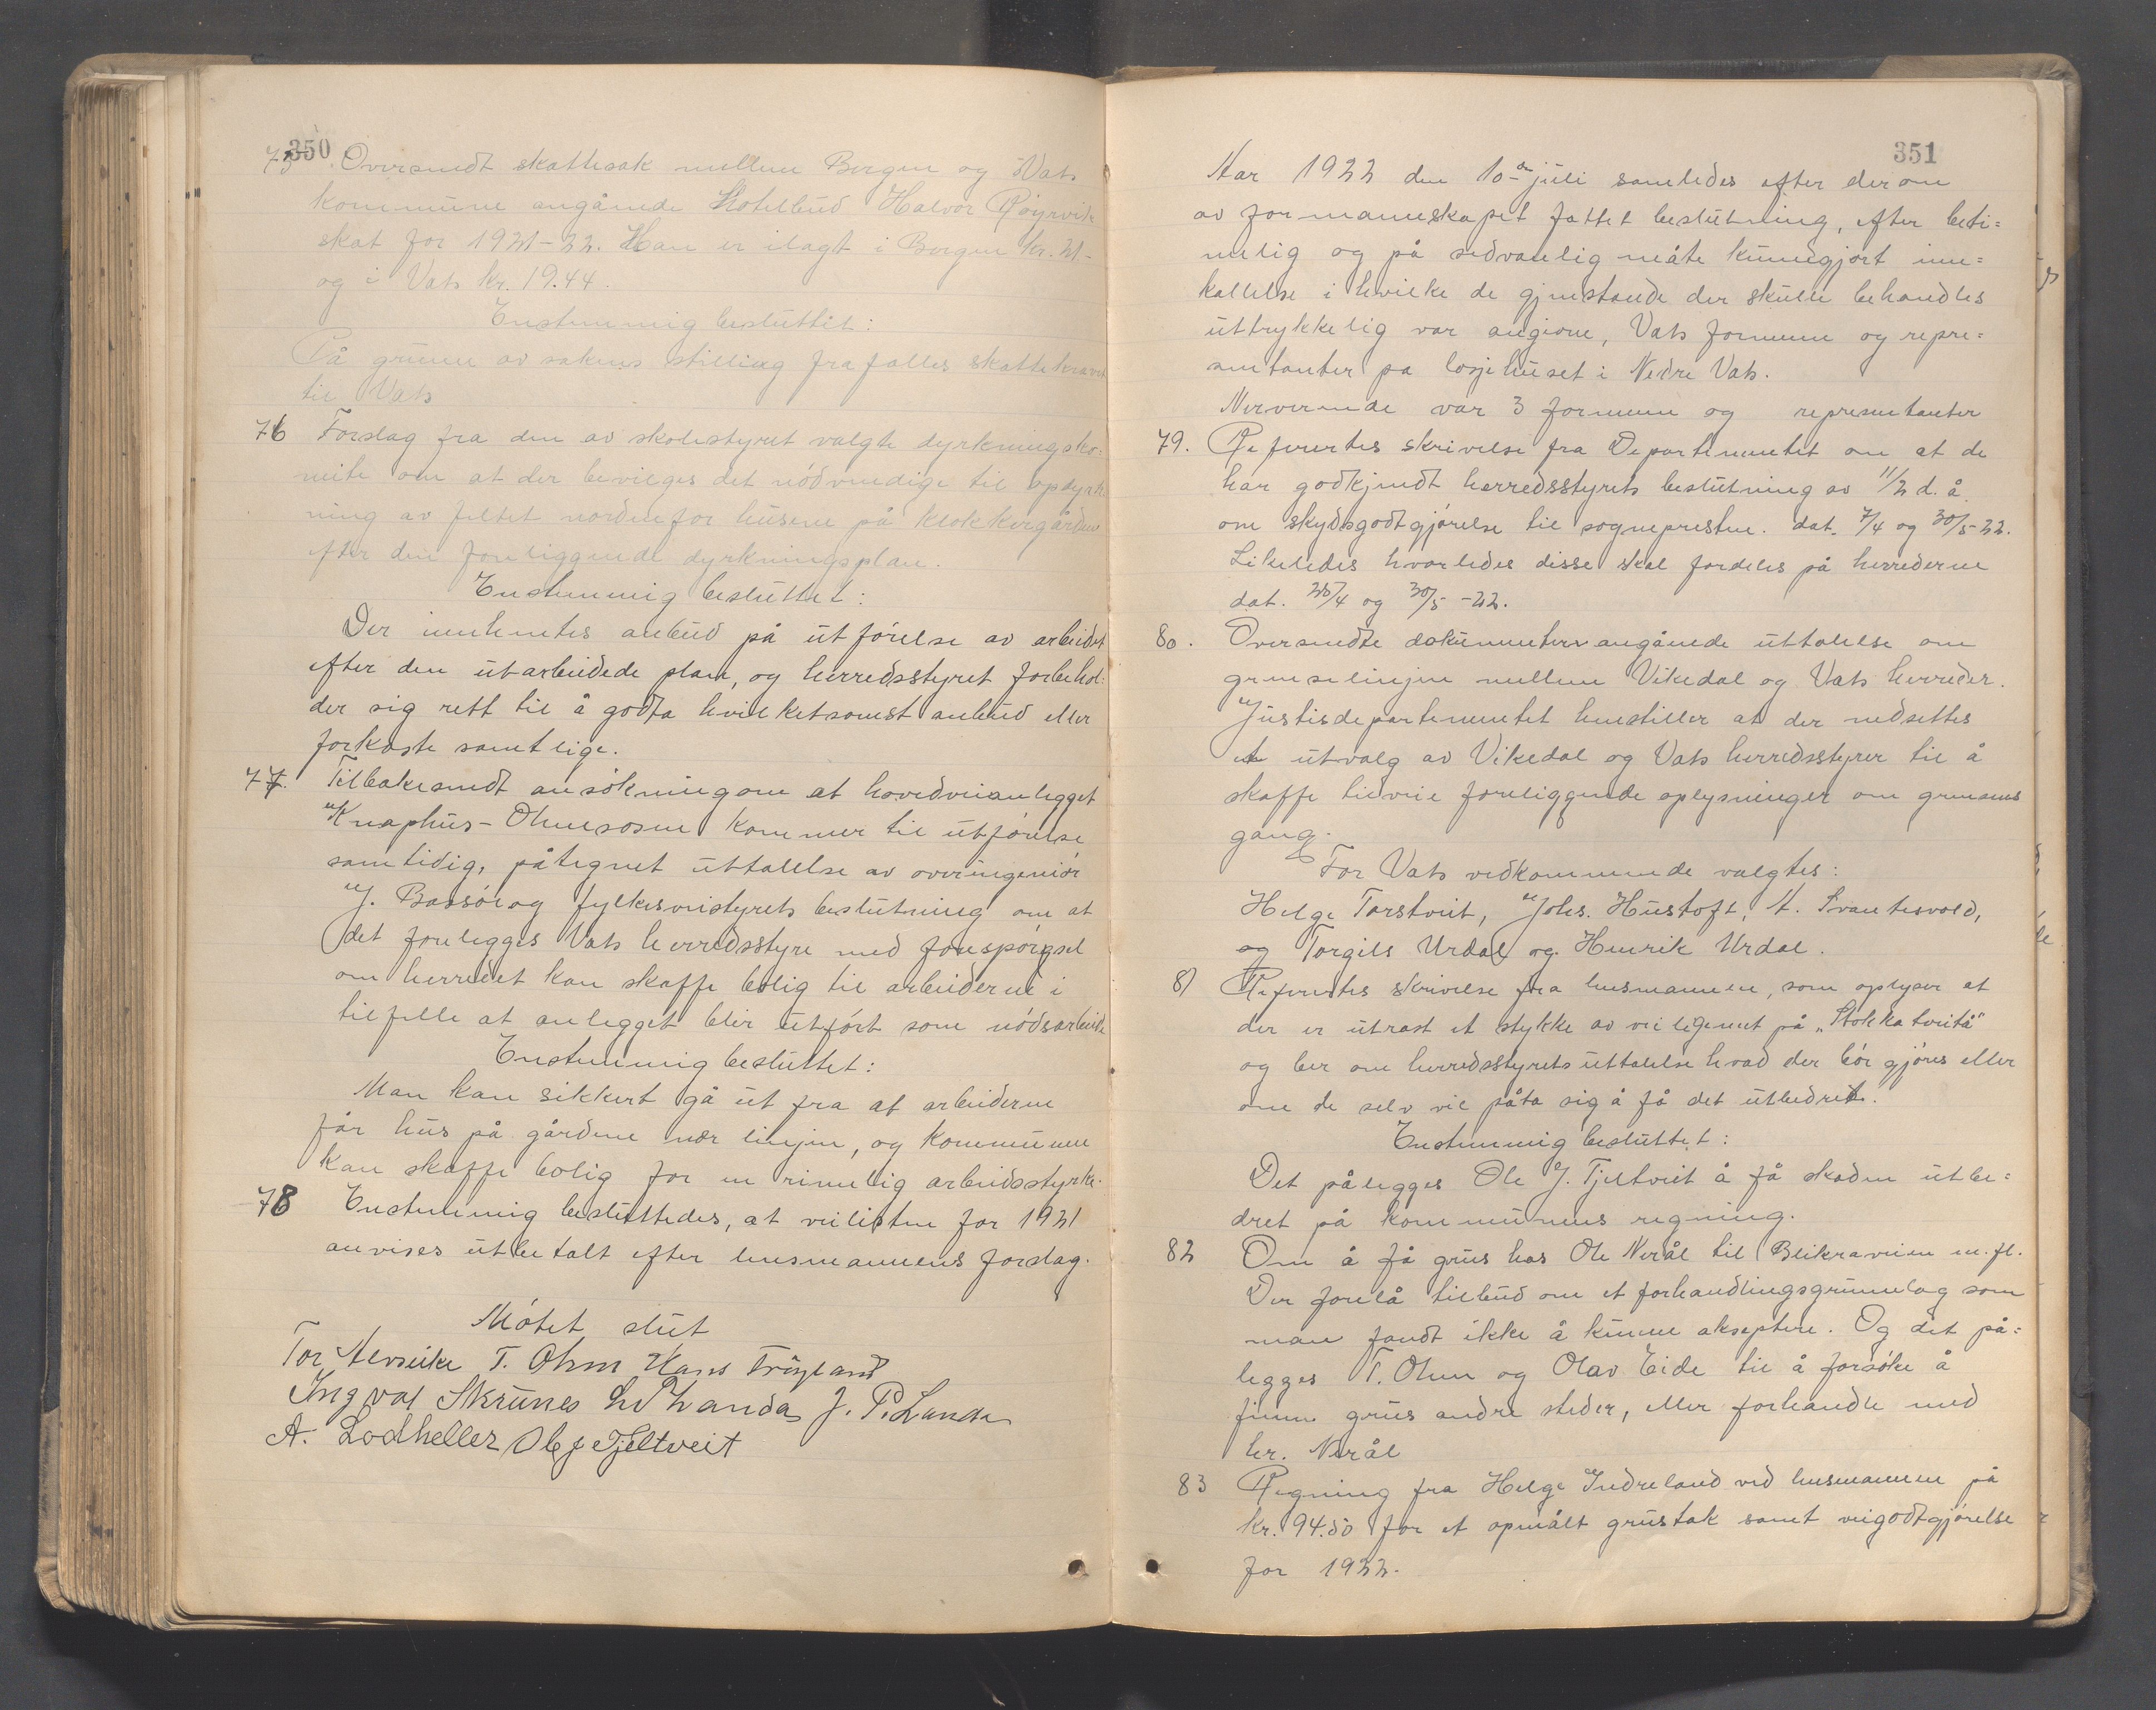 350
75. Oversendt skattesak mellem Bergen og Vats
kommune angående Hotelbud Halvor Røyrvik
skat for 1921-22. Han er ilagt i Bergen kr. 21-
og i Vats kr. 19.44.
Enstemmig besluttet:
På grunn av sakens stilling frafalles skattekravet
til Vats
76 Forslag fra den av skolestyret valgte dyrkningsko=
mite om at der bevilges det nödvendige til opdyrk
ning av feltet nordenfor husene på klokkergården
efter den foreliggende dyrkningsplan.
Enstemmig besluttet:
Der innhentes anbud på utförelse av arbeidet
efter den utarbeidede plan, og herredsstyret forbehol=
der sig rett til å godta hvilketsomst anbud eller
forkaste samtlige.
77. Tilbakesendt ansökning om at hovedveianlegget
Knaphus-Ohmsosen kommer til utförelse
samtidig, påtegnet uttalelse av overingeniör
J. Bassöe og fylkesveistyrets beslutning om at
det forelegges Vats herredsstyre med forespörgsel
om herredet kan skaffe bolig til arbeiderne i
tilfelle at anlegget blir utfört som nödsarbeide
Enstemmig besluttet:
Man kan sikkert gå ut fra at arbeiderne
får hus på gårdene nær linjen, og kommunen
kan skaffe bolig for en rimelig arbeidsstyrke.
78 Enstemmig besluttedes, at veilisten for 1921
anvises utbetalt efter lensmannens forslag.
Mötet slut
Tor Alvseike T. Ohm Hans Fröyland
Ingval Skrunes J. P. Lunde
A. Lodheller Ole J. Tjeltveit
351
Aar 1922 den 10de juli samledes efter derom
av formannskapet fattet beslutning, efter beti=
melig og på sedvanlig måte kunngjort inn=
kallelse i hvilke de gjenstande der skulle behandles
uttrykkelig var angivne, Vats formenn og repre=
sentanter på losjehuset i Nedre Vats.
Nerverende var 3 formenn og representanter
79. Refertes skrivelse fra Departementet om at de
har godkjendt herredsstyrets beslutning av 11/2 d. å.
om skydsgodtgjörelse til sogneprestene. dat. 7/4 og 30/5-22.
Likeledes hvorledes disse skal fordeles på herrederne
dat. 25/4 og 30/5 -22.
80. Oversendte dokumenter angående uttalelse om
grenselinjen mellem Vikedal og Vats herreder.
Justisdepartementet henstiller at der nedsettes
et utvalg av Vikedal og Vats herredsstyrer til å
skaffe tilveie foreliggende oplysninger om grensens
gang.
For Vats vedkommende valgtes:
Helge Torstveit, Johs. Hustoft, A. Svantesvold,
og Torgils Urdal og Henrik Urdal.
81 Refertes skrivelse fra lensmannen, som oplyser at
der er utrast et stykke av veilegemet på "Stokkatveitå"
og ber om herredsstyrets uttalelse hvad der bör gjöres eller
om de selv vil påta sig å få det utbedret.
Enstemmig besluttet:
Det pålegges Ole J. Tjeltveit å få skaden utbe=
dret på kommunens regning.
82 Om å få grus hos Ole Nerål til Blikraveien m.fl.
Der forelå tilbud om et forhandlingsgrunnlag som
man fandt ikke å kunne akseptere. Og det på=
legges T. Ohm og Olav Eide til å forsöke å
finne grus andre steder, eller forhandle med
hr. Nerål
83 Regning fra Helge Indreland ved lensmannen på
kr. 94.50 for et opmålt grustak samt veigodtgjörelse
for 1922.